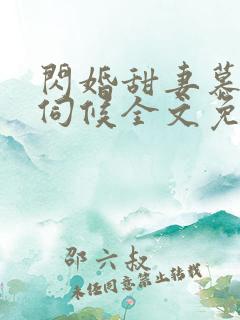 閃婚甜妻慕
伺候全文免
邵六叔
未经同意禁止转载